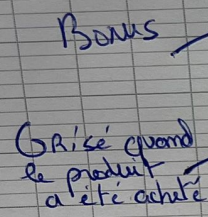 Bonus
Grisé quand
le produit
a été acheté